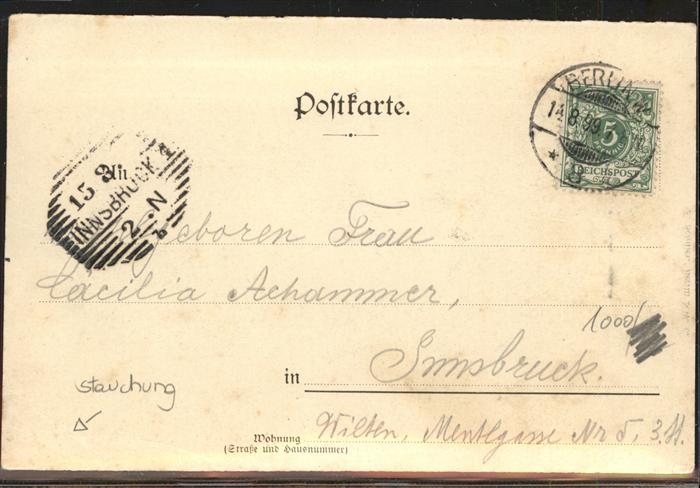 Postkarte.
BERLIN
14.8.99
5
REICHSPOST
An
15 8
INNSBRUCK 1
2.N
Frau
Cäcilia Achammer,
1000
in Innsbruck.
stauchung
Wohnung Wilten, Mentlgasse Nr 5, 3. St.
(Straße und Hausnummer)